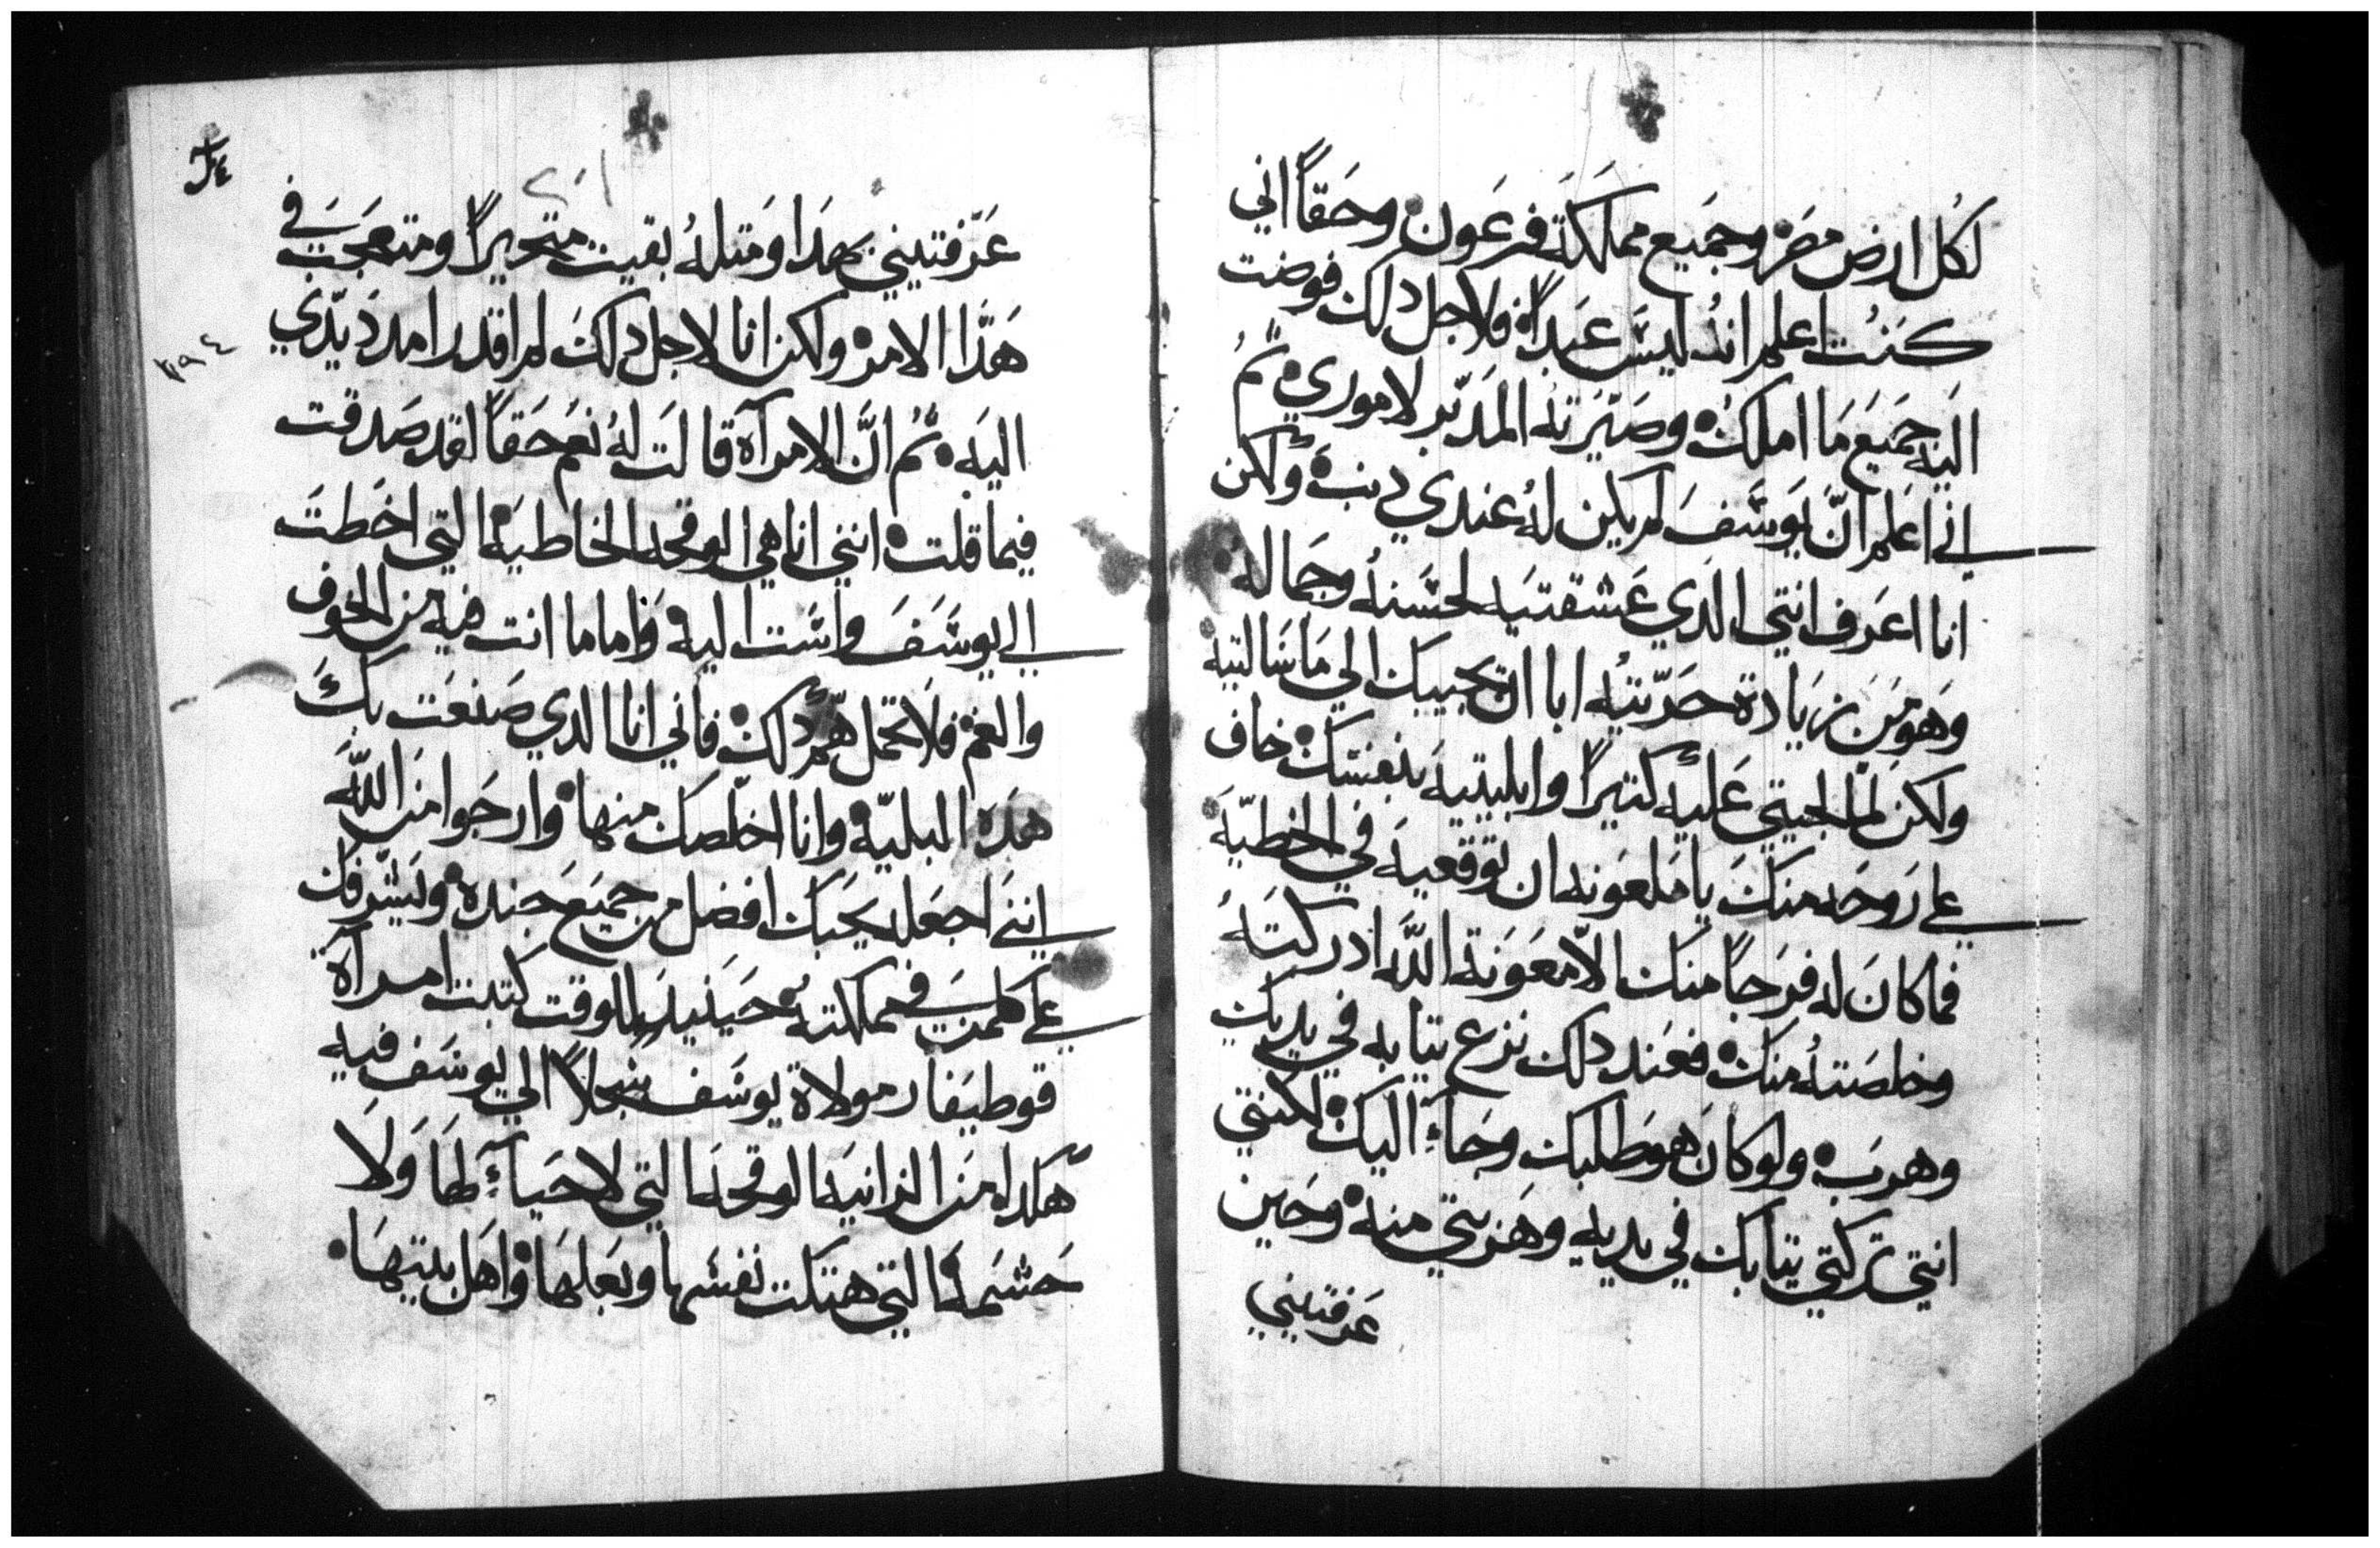 لكل ارض مصر وجميع مملكة فرعون وحقاً اني
كنت اعلم انه ليس عبداً فلاجل دلك فوضت
اليه جميع ما املكه وصيرته المدبر لاموري ثم
اني اعلم ان يوسف لم يكن له عندي دنب ولكن
انا اعرف انتي الدي عشقتيه لحسنه وجماله
وهو من زيادة حريته ابا ان يجيبك الي ما سالتيه
ولكن لما لجيتي عليه كتيراً وابليتيه بنفسك خاف
علي روحه منك يا ملعونه ان توقعيه في الخطيه
فما كان له فرجاً منك الا معونة الله ادركته
وخلصته منك فعند دلك نزع تيابه في يديك
وهرب ولو كان هو طلبك وجاء اليك لكنتي
انتي تركتي تيابك في يديه وهربتي منه وحين
عرفتيني
٢٠١
٣٩٤
عرفتيني بهدا ومتله بقيت متحيراً ومتعجب في
هدا الامر ولكن انا لاجل دلك لم اقدر امد يدي
اليه ثم ان الامرآة قالت له نعم حقاً لقد صدقت
فيما قلت انني انا هي الوقحه الخاطيه التي اخطت
الي يوسف واست اليه واما ما انت فيه من الخوف
والغم فلا تحمل هم دلك فاني انا الدي صنعت بك
هده البليه وانا اخلصك منها وارجوا من الله
انني اجعله يحبك افضل من جميع جنده ويشرفك
علي كلمن في مملكته حينيد بالوقت كتبت امرآة
قوطيفار مولاة يوسف سجلاً الي يوسف فيه
هكداه من الزانيه الوقحه التي لا حياء لها ولا
حشمه التي هتكت نفسها وبعلها واهل بيتها